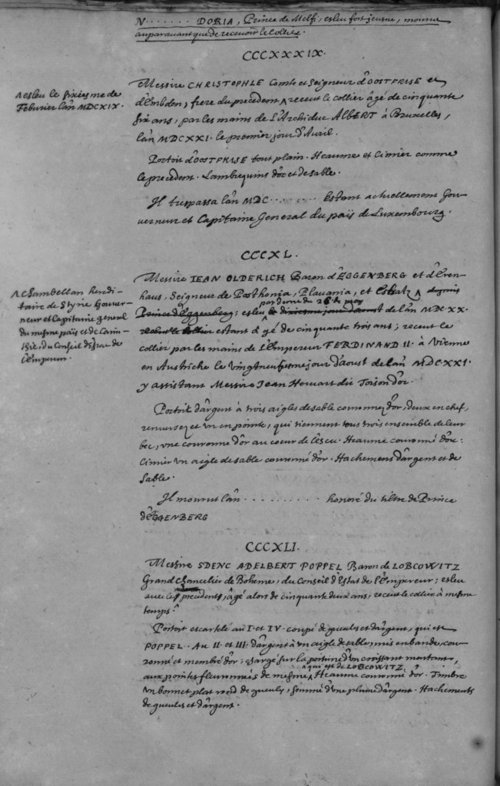 N······· DORIA, Prince de Melfi, esleu fort jeusne, mourut
auparavant que de recevoir le Collier.
CCCXXXIX.
Messire CHRISTOPHLE Comte et Seigneur d'OOSTFRISE et
d'Embden, frere du precedent, ʌ receut le collier âgé de cinquante
six ans, par les mains de L'Archiduc ALBERT à Bruxelles,
l'an MDCXXI. le premier jour d'Avril.
ʌ esleu le sixiesme de
Febvrier l'an MDCXIX.
Portoit d'OOSTFRISE tout plain. Heaume et Cimier comme
le precedent. Lambrequins d'or et de sable.
Il trespassa l'an MDC········ Estant actuellement Gou-
verneur et Capitaine General du païs de Luxembourg.
CCCXL.
Messire JEAN OLDERICH Baron d'EGGENBERG et d'Eren-
haus, Seigneur de Posthonia, Planania, et ʌ
Prince d'Eggenberg; esleu de l'an MDCXX.
estant âgé de cinquante trois ans; receut le
collier par les mains de L'Empereur FERDINAND II. à Vienne
en Austriche le vingtneufiesme jour d'aoust de l'an MDCXXI.
y assistant Messire Jean Howart dit Toison d'or.
ʌ Chambellan heredi-
taire de Styrie Gouver-
neur et Capitaine general
du mesme païs et de Carin-
thie, du Conseil d'Estat de
l'Empereur.
Portoit d'argent à trois aigles de sable couronnez d'or, deux en chef,
renversez et un en pointe, qui tiennent tous trois ensemble de leur
bec, une couronne d'or au coeur de l'escu. Heaume couronné d'or.
Cimier un aigle de sable couronné d'or. Hachemens d'argent et de
sable.
Il mourut l'an ·········· honoré du tiltre de Prince
d'EGGENBERG
CCCXLI.
Messire SDENC ADELBERT POPPEL Baron de LOBCOWITZ
Grand Chancelier de Boheme, du Conseil d'Estat de l'Empereur; esleu
avec les precedents, âgé alors de cinquante deux ans; receut le collier à mesme
temps.
Portoit escartelé au I. et IV. coupé de gueules et d'argent, qui est
POPPEL. Au II. et III. d'argent à un aigle de sable, mis en bande, cou-
ronné et membré d'or; chargé sur la poitrine d'un croissant montant,
aux pointes fleuronnées de mesme, ʌ qui est de LOBCOWITZ. Heaume couronné d'or. Timbre
un bonnet plat rond de gueules, sommé d'une plume d'argent. Hachements
de gueules et d'argent.